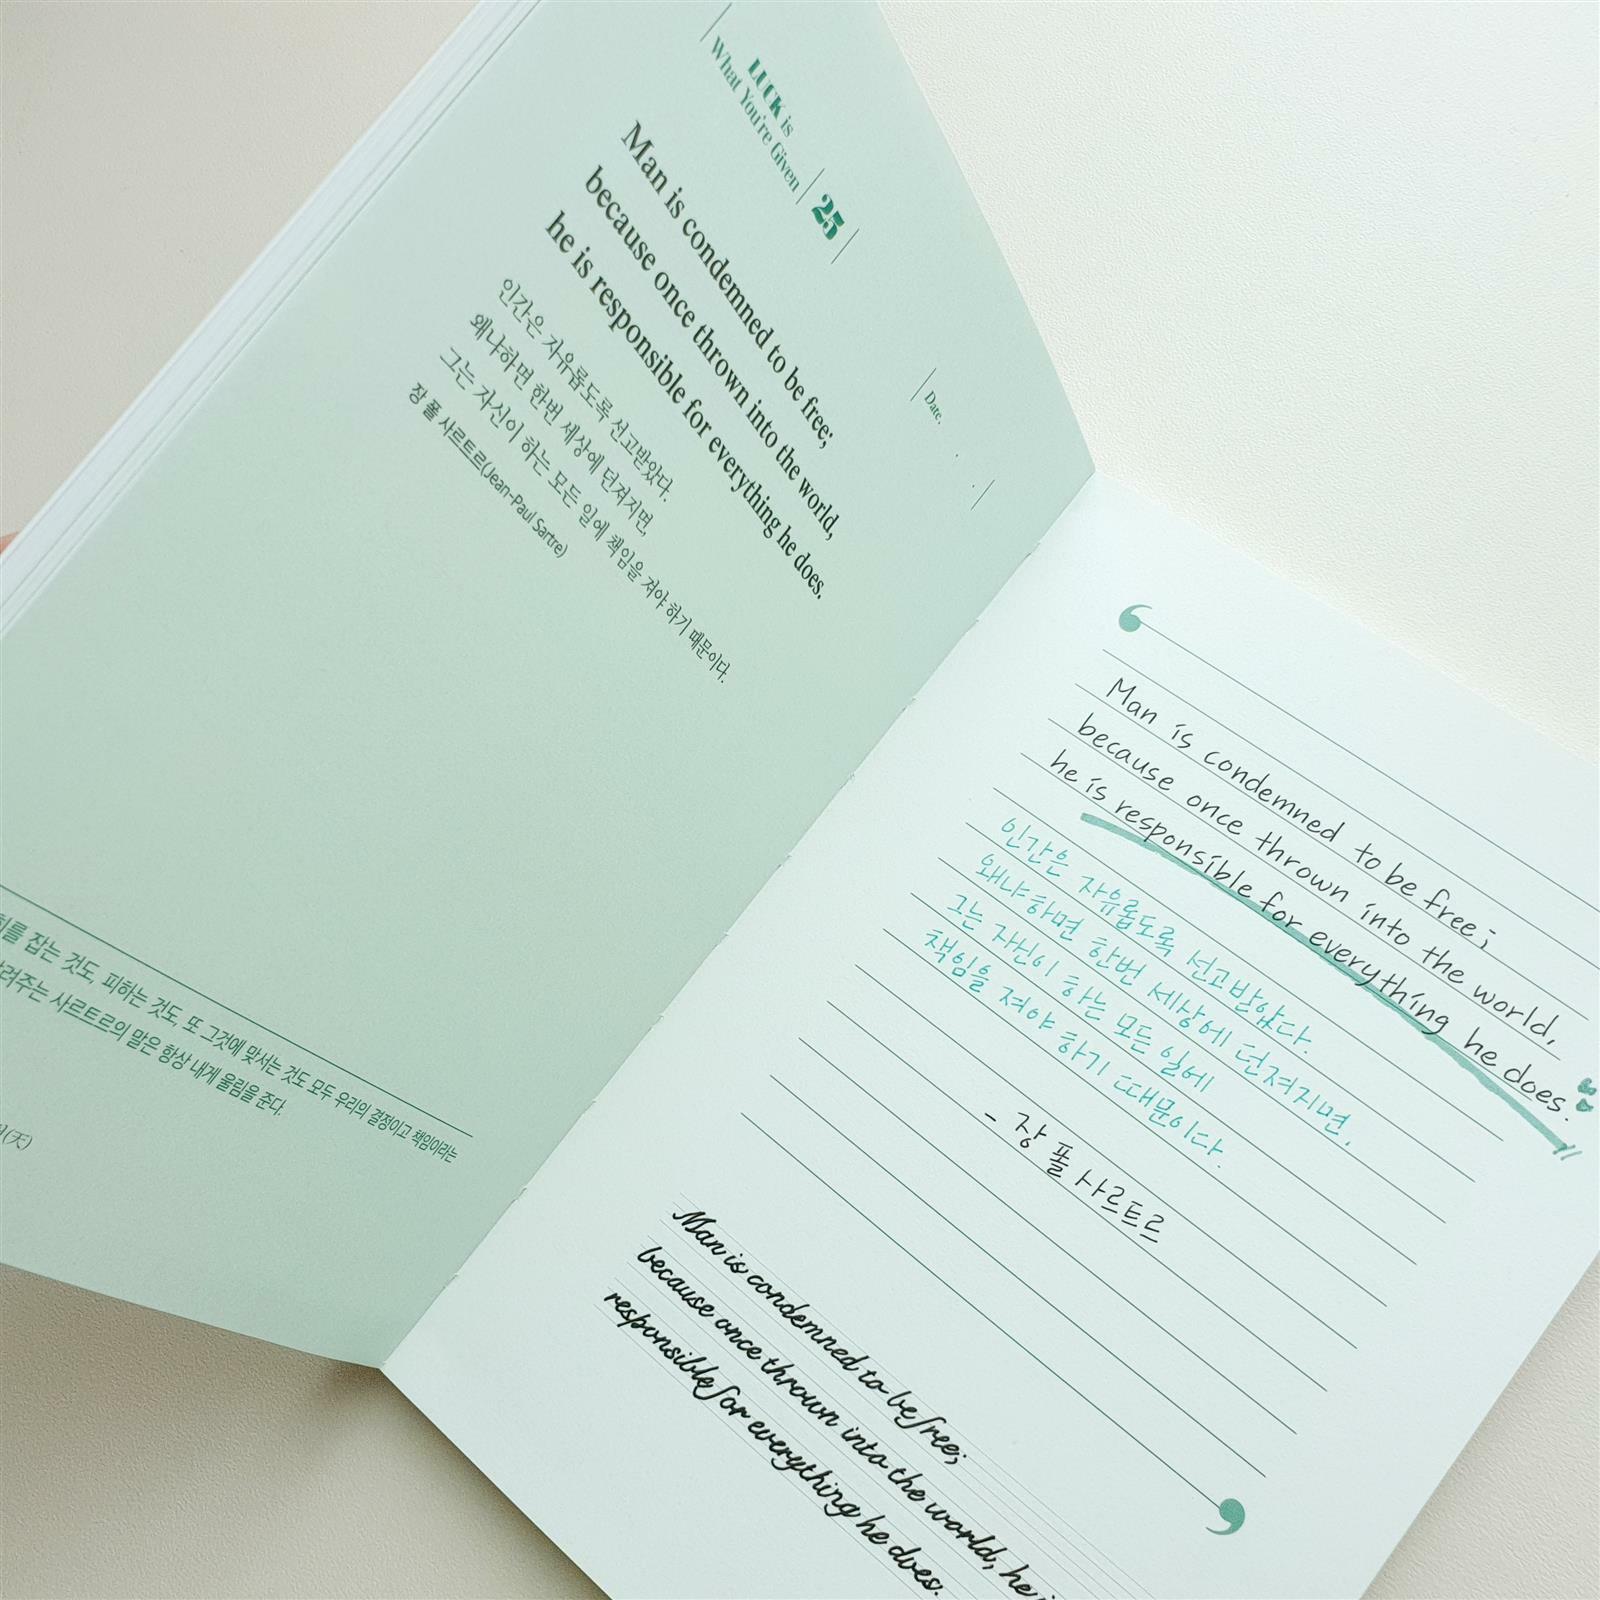 LUCK is
What You're Given
25
Man is condemned to be free;
because once thrown into the world,
he is responsible for everything he does.
인간은 자유롭도록 선고받았다.
왜냐하면 한번 세상에 던져지면,
그는 자신이 하는 모든 일에 책임을 져야 하기 때문이다.
장 폴 사르트르(Jean-Paul Sartre)
Date. . .
잡는 것도, 피하는 것도, 또 그것에 맞서는 것도 모두 우리의 결정이고 책임이라는
사르트르의 말은 항상 내게 울림을 준다.
(天)
Man is condemned to be free;
because once thrown into the world,
he is responsible for everything he does.
인간은 자유롭도록 선고받았다.
왜냐하면 한번 세상에 던져지면,
그는 자신이 하는 모든 일에
책임을 져야 하기 때문이다.
- 장 폴 사르트르
Man is condemned to be free;
because once thrown into the world, he
responsible for everything he does.